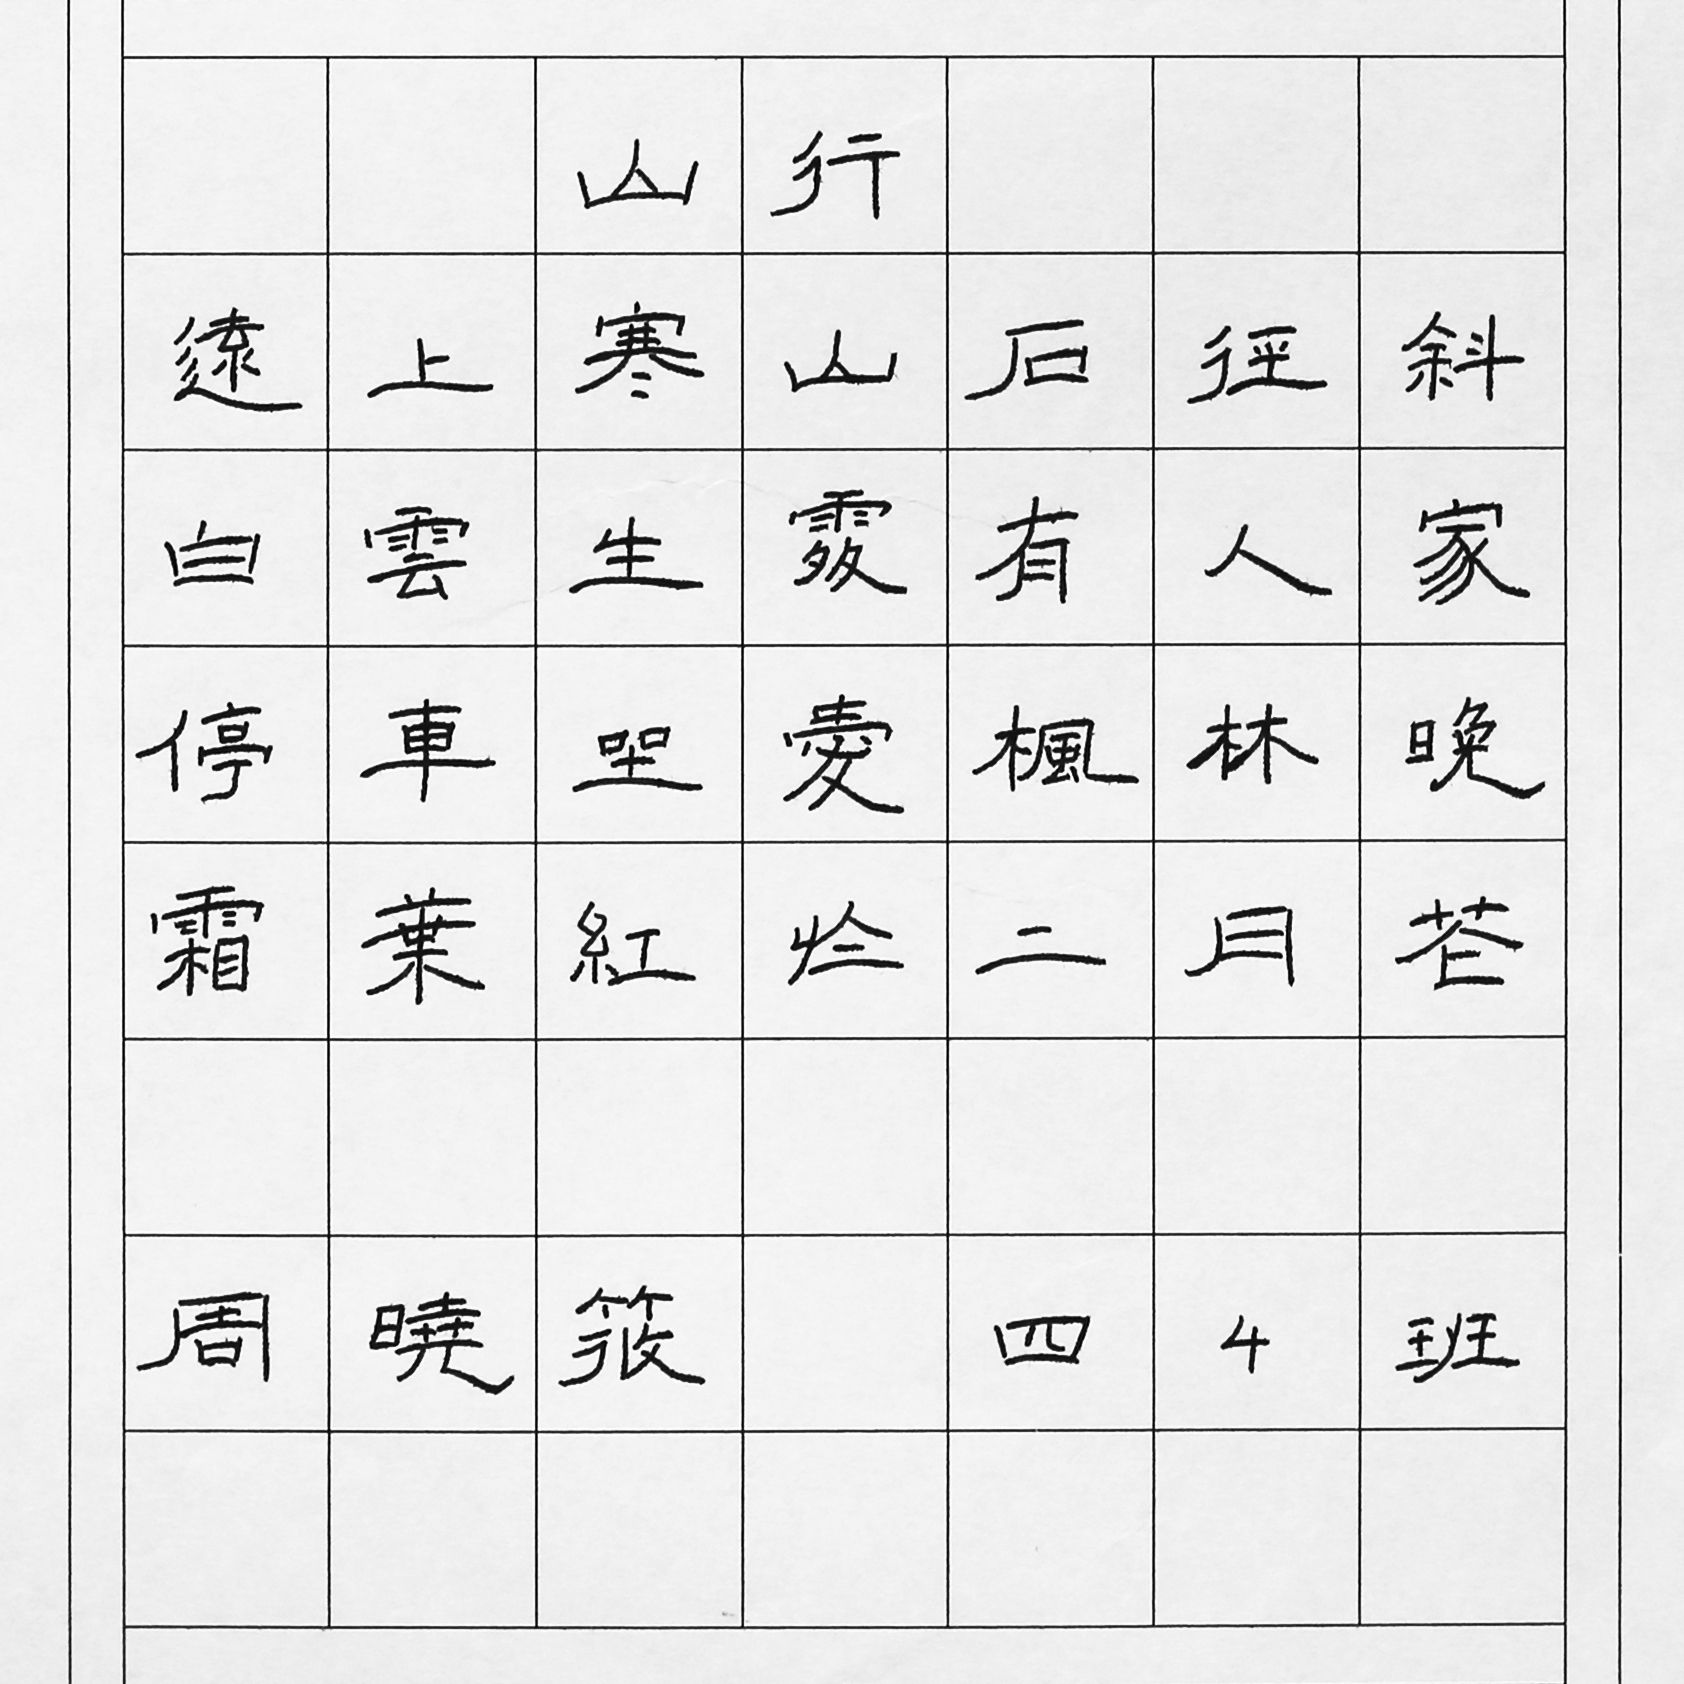 山行
遠上寒山石徑斜
白雲生處有人家
停車坐愛楓林晚
霜葉紅於二月花
周曉筱 四4班